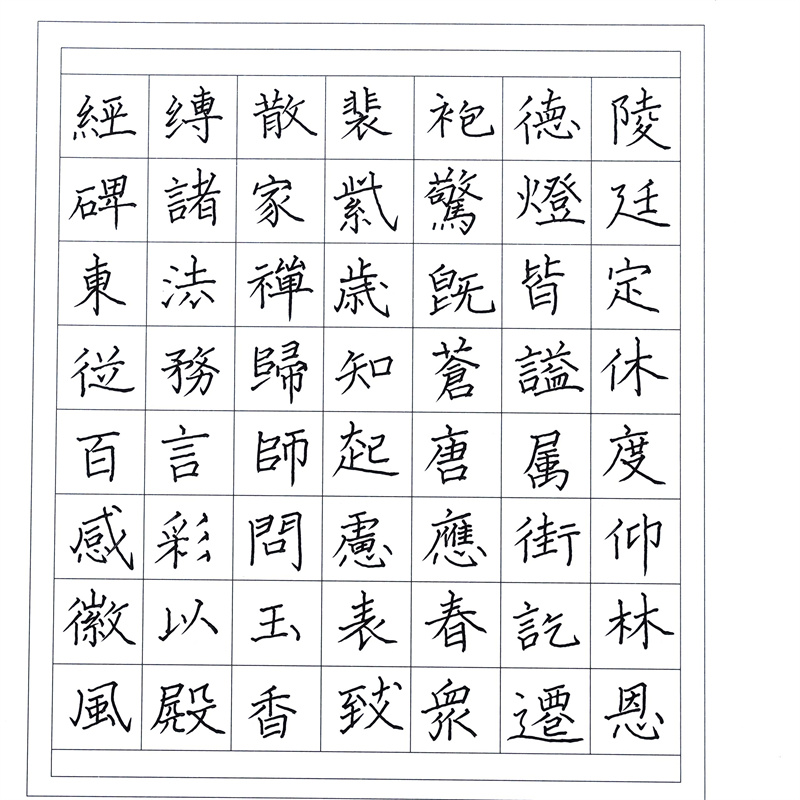 經縛散裴袍徳陵
碑諸家紫驚燈廷
東法禪歳既皆定
従務歸知蒼謚休
百言師起唐属度
感彩問慮應街仰
徽以玉表春訖林
風殿香致眾遷恩